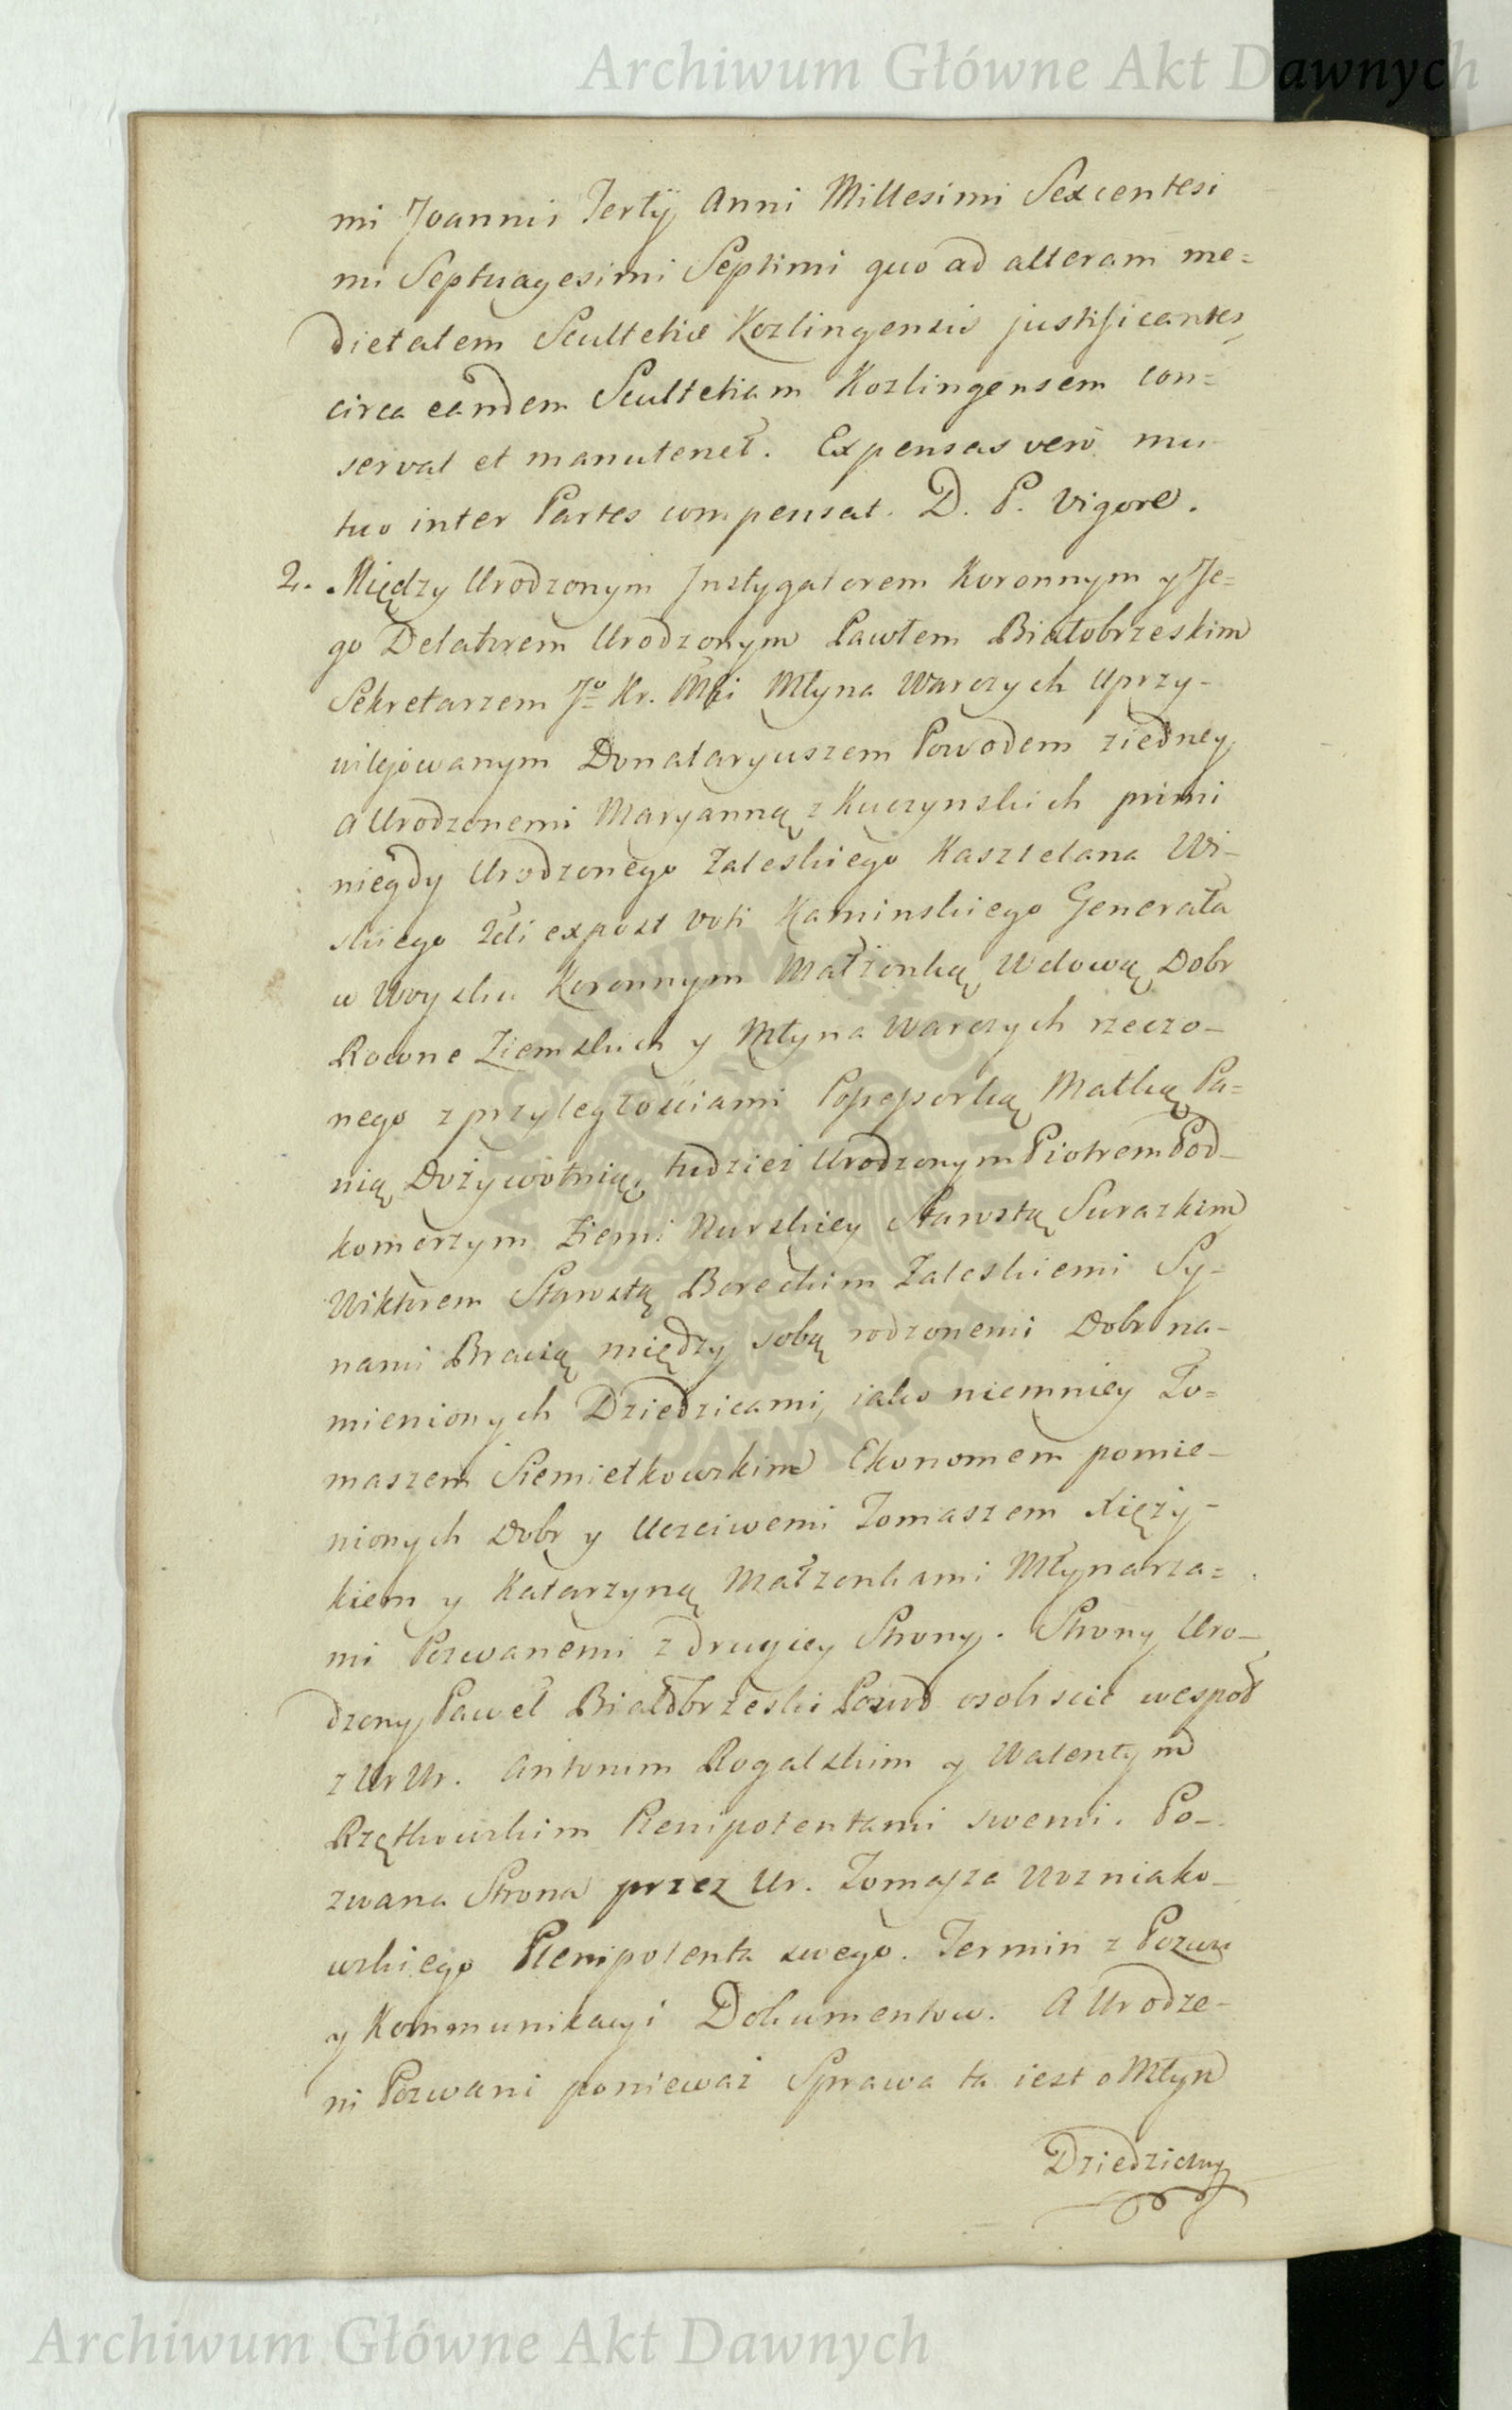 Archiwum Główne Akt Dawnych
mi Joannis Tertÿ Anni Millesimi Sexcentesi
mi Septuagesimi Septimi quo ad alteram me=
dietatem Scultetiæ Kozlingensis justificantes,
circa eandem Scultetiam Kozlingensem con=
servat et manutenet. Expensas vero mu-
tuo inter Partes compensat. D. P. Vigore.
2. Między Urodzonym Instygatorem Koronnym y Je=
go Delatorem Urodzonym Pawłem Białobrzeskim
Sekretarzem Jº Kr. Mći Młyna Warczych Uprzy-
wilejowanym Donataryuszem Powodem ziedney
A Urodzonemi Maryanną z Kuczynskich primi
niegdy Urodzonego Zaleskiego Kasztelana Wi-
skiego 2di expost voti Kaminskiego Generała
w Woysku Koronnym Małżonką, Wdową, Dobr
Rowne Ziemskich y Młyna Warczych rzeczo-
nego z przyległościami Possessorką Matką Pa=
nią Dożywotnią, tudzież Urodzonym Piotrem Pod-
komorzym Ziemi Nurskiey Starostą Surazkim
Wiktorem Starostą Boreckim Zaleskiemi Sy-
nami Bracią między sobą rodzonemi Dobr na-
mienionych Dziedzicami, iako niemniey To=
maszem Siemiętkowskim Ekonomem pomie-
nionych Dobr y Uczciwemi Tomaszem Xięży-
kiem y Katarzyną Małżonkami Młynarza=
mi Pozwanemi z drugiey Strony. Strony Uro-
dzony Paweł Białobrzeski Powod osobiscie wespoł
z Ur Ur. Antonim Rogalskim y Walentym
Rzętkowskim Plenipotentami swemi. Po-
zwana Strona przez Ur. Tomasza Wozniako-
wskiego Plenipotenta swego. Termin z Pozwu
y Kommunikacyi Dokumentow. A Urodze-
ni Pozwani ponieważ Sprawa ta iest o Młyn
Dziedziczny
ARCHIWUM GŁÓWNE AKT DAWNYCH
Archiwum Główne Akt Dawnych